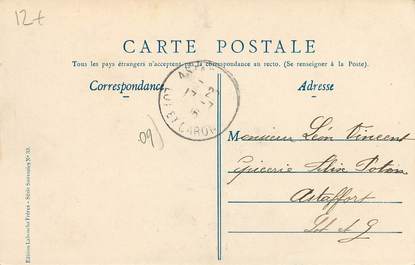 12+
CARTE POSTALE
Tous les pays étrangers n'acceptent pas la correspondance au recto. (Se renseigner à la Poste).
Correspondance
Adresse
LOT ET GARON
09)
Monsieur Léon Vincent
épicerie Félix Potin
Astaffort
Lot et G
Edition Labouche Frères - Série